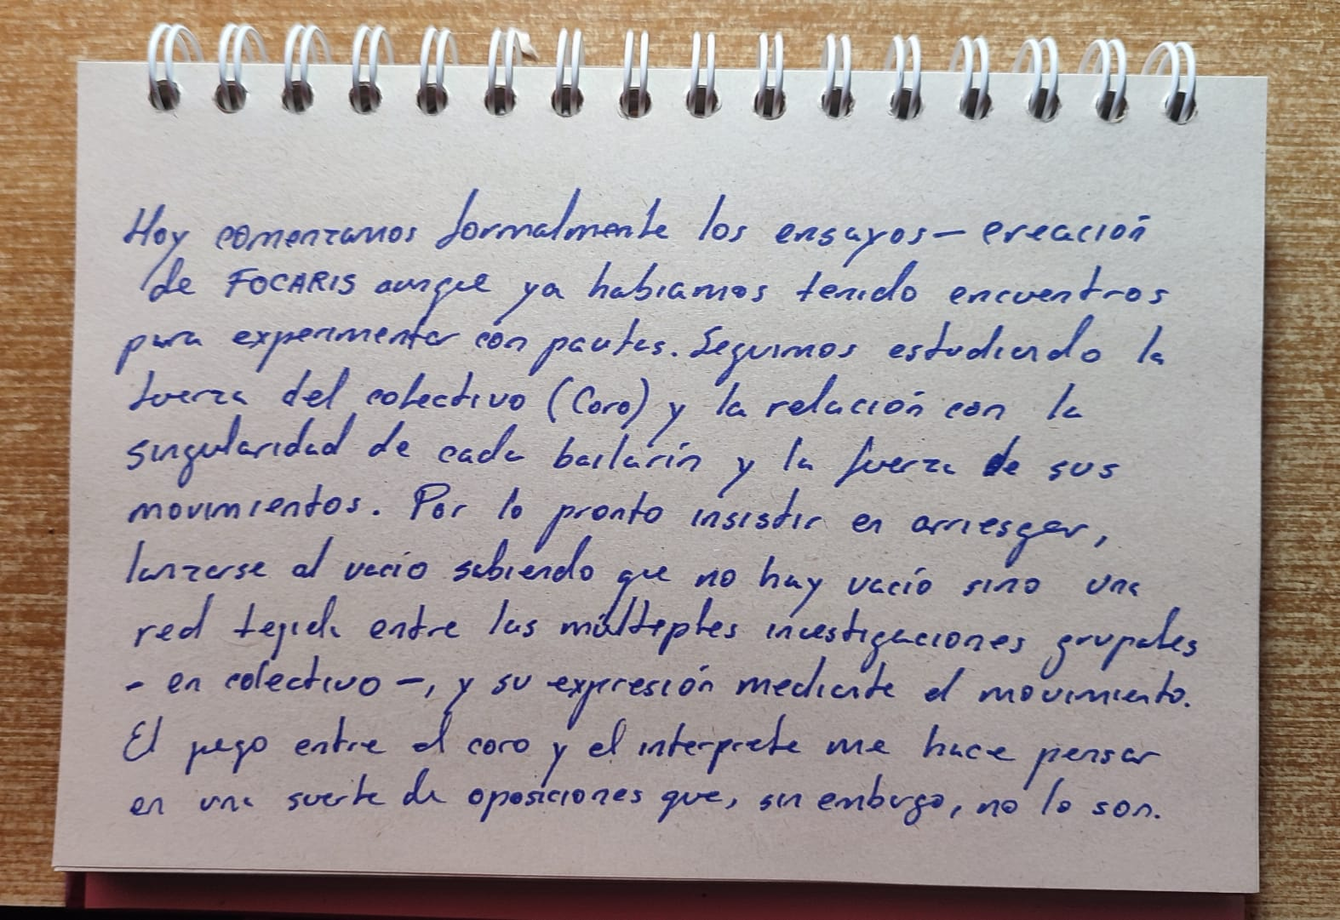 Hoy comenzamos formalmente los ensayos — creación
de FOCARIS aunque ya habíamos tenido encuentros
para experimentar con pautas. Seguimos estudiando la
fuerza del colectivo (Coro) y la relación con la
singularidad de cada bailarín y la fuerza de sus
movimientos. Por lo pronto insistir en arriesgar,
lanzarse al vacío sabiendo que no hay vacío sino una
red tejida entre las múltiples investigaciones grupales
- en colectivo -, y su expresión mediante el movimiento.
El juego entre el coro y el interprete me hace pensar
en una suerte de oposiciones que, sin embargo, no lo son.